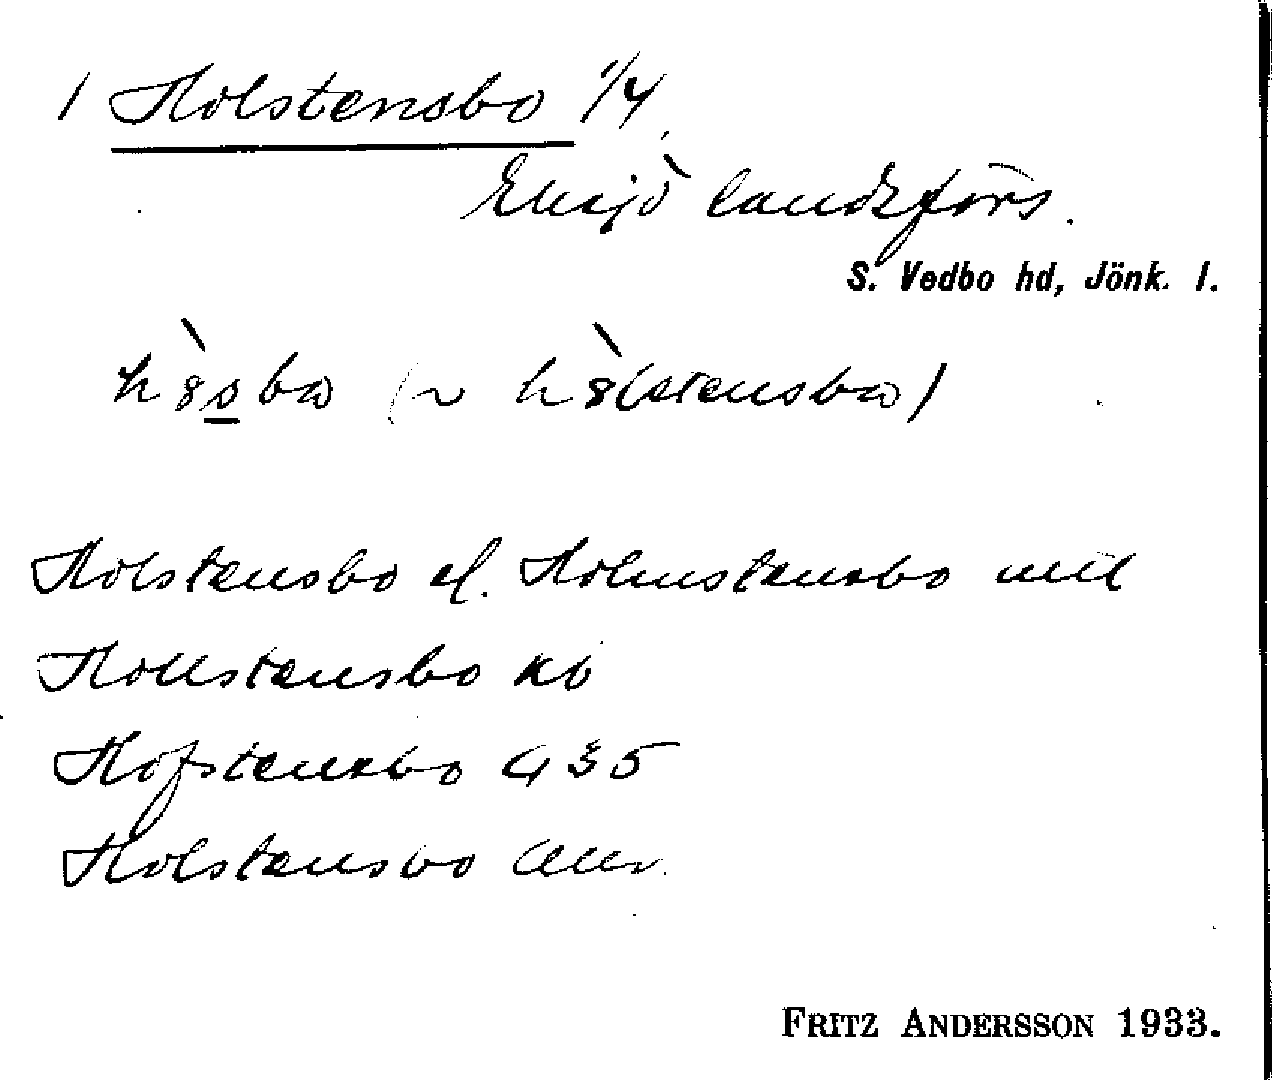 1 Holstensbo 1/4
Eksjö landsförs.
S. Vedbo hd, Jönk. l.
Holstensbo el. Holmstensbo
Hollstensbo kb
Hofstensbo 435
Holstensbo
FRITZ ANDERSSON 1933.